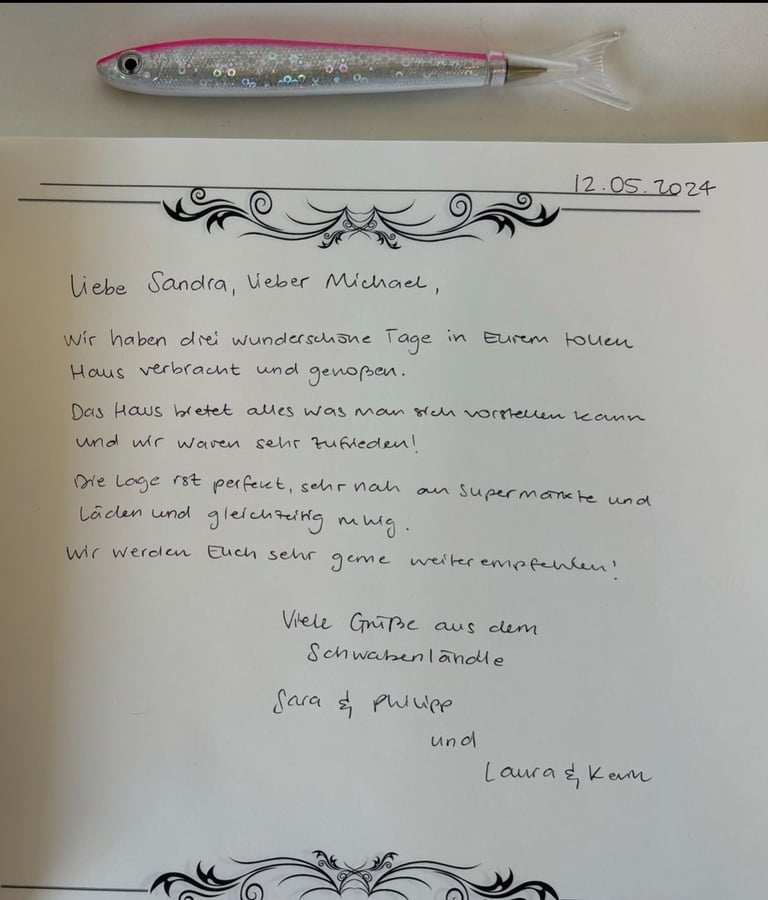 12.05.2024
Liebe Sandra, lieber Michael,
Wir haben drei wunderschöne Tage in Eurem tollen
Haus verbracht und genoßen.
Das Haus bietet alles was man sich vorstellen kann
und wir waren sehr zufrieden!
Die Lage ist perfekt, sehr nah an Supermärkte und
Läden und gleichzeitig ruhig.
Wir werden Euch sehr gerne weiterempfehlen!
Viele Grüße aus dem
Schwabenländle
Sara & Philipp
und
Laura & Kevin